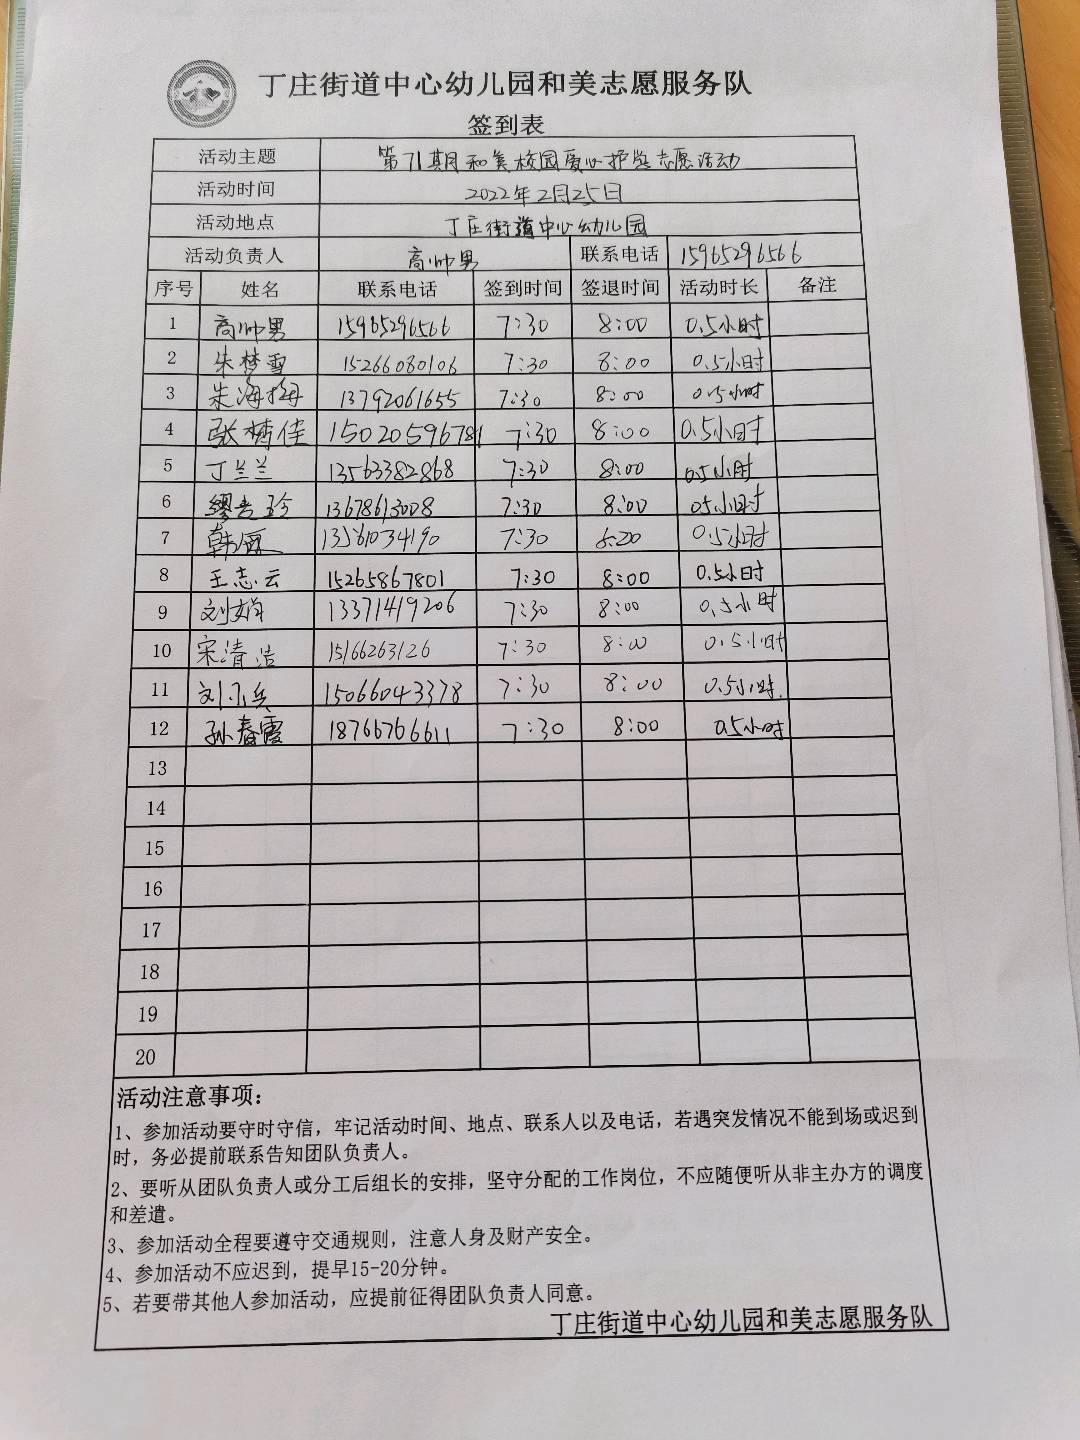 丁庄街道中心幼儿园和美志愿服务队
签到表
活动主题 第71期和美校园爱心护学志愿活动
活动时间 2022年2月25日
活动地点 丁庄街道中心幼儿园
活动负责人 高帅男 联系电话 15965296566
序号 姓名 联系电话 签到时间 签退时间 活动时长 备注
1 高帅男 15965296566 7:30 8:00 0.5小时
2 朱梦雪 15266080106 7:30 8:00 0.5小时
3 朱海梅 13792061655 7:30 8:00 0.5小时
4 张梦佳 15020596781 7:30 8:00 0.5小时
5 丁兰兰 13563382868 7:30 8:00 0.5小时
6 缪吉玲 13678613008 7:30 8:00 0.5小时
7 韩丽 13561034190 7:30 8:00 0.5小时
8 王志云 15265867801 7:30 8:00 0.5小时
9 刘娟 13371419206 7:30 8:00 0.5小时
10 宋清洁 15166263126 7:30 8:00 0.5小时
11 刘小兵 15066043378 7:30 8:00 0.5小时.
12 孙春霞 18766766611 7:30 8:00 0.5小时
13
14
15
16
17
18
19
20
活动注意事项：
1、参加活动要守时守信，牢记活动时间、地点、联系人以及电话，若遇突发情况不能到场或迟到
时，务必提前联系告知团队负责人。
2、要听从团队负责人或分工后组长的安排，坚守分配的工作岗位，不应随便听从非主办方的调度
和差遣。
3、参加活动全程要遵守交通规则，注意人身及财产安全。
4、参加活动不应迟到，提早15-20分钟。
5、若要带其他人参加活动，应提前征得团队负责人同意。
丁庄街道中心幼儿园和美志愿服务队